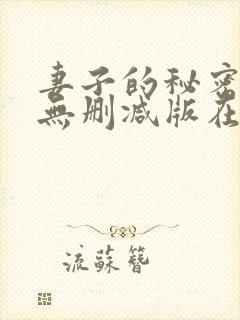 妻子的秘密
無刪减版在
流蘇簪